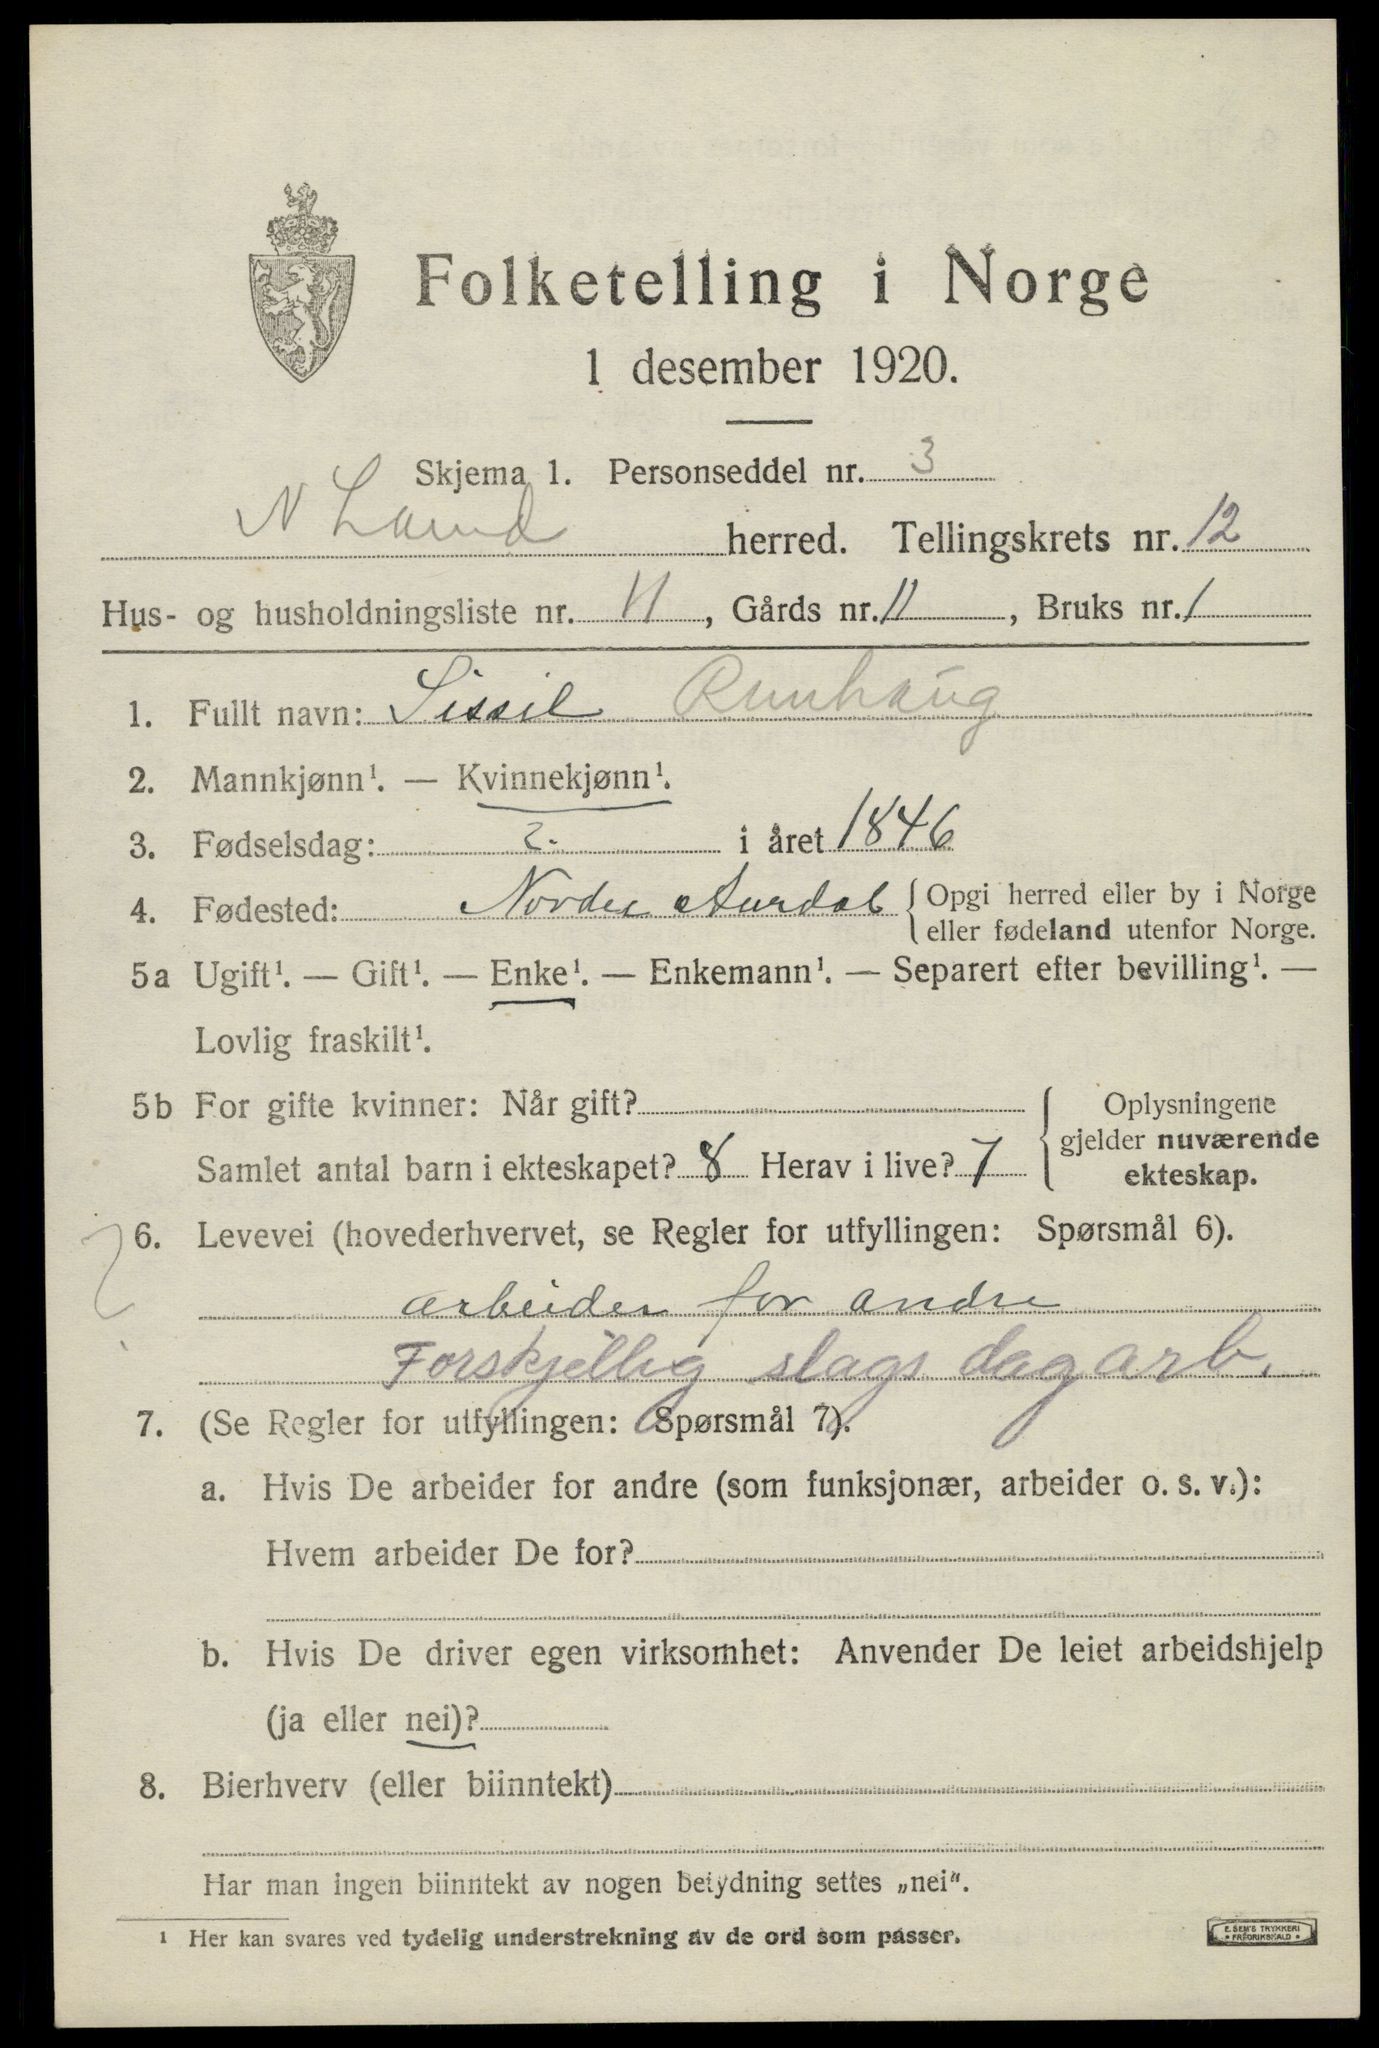 Folketelling i Norge
1 desember 1920.
Skjema 1. Personseddel nr. 3
N Land herred. Tellingskrets nr. 12
Hus- og husholdningsliste nr. 11, Gårds nr. 11, Bruks nr. 1
1. Fullt navn: Sissil Runhaug
2. Mannkjønn¹. — Kvinnekjønn¹.
3. Fødselsdag: 2. i året 1846
4. Fødested: Nordre Aurdal { Opgi herred eller by i Norge
eller fødeland utenfor Norge.
5a Ugift¹. — Gift¹. — Enke¹. — Enkemann¹. — Separert efter bevilling¹. —
Lovlig fraskilt¹.
5b For gifte kvinner: Når gift? { Oplysningene
gjelder nuværende
Samlet antal barn i ekteskapet? 8 Herav i live? 7
ekteskap.
6. Levevei (hovederhvervet, se Regler for utfyllingen: Spørsmål 6).
arbeider for andre
Forskjellig slags dagarb.
7. (Se Regler for utfyllingen: Spørsmål 7).
a. Hvis De arbeider for andre (som funksjonær, arbeider o. s. v.):
Hvem arbeider De for?
b. Hvis De driver egen virksomhet: Anvender De leiet arbeidshjelp
(ja eller nei)?
8. Bierhverv (eller biinntekt)
Har man ingen biinntekt av nogen betydning settes „nei“.
¹ Her kan svares ved tydelig understrekning av de ord som passer.
E. SEM'S TRYKKERI
* FREDRIKSHALD *